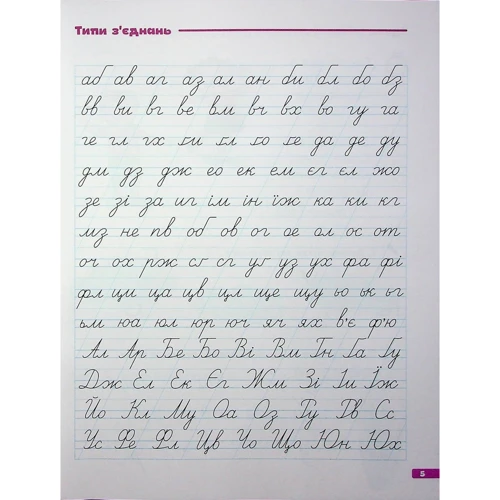 Типи з'єднань
аб ав аг аз ал ан би бл бо бз
вв ви вг ве вм вч вх во гу га
ге гл гх ґи ґл ґо ґе да де ду
дм дз дж ео ек ем єг єл жо
зе зі за иг ім ін їж ка ки кг
мз не пв об ов ог ое ол ос от
оч ох рж сб сг уб уз ух фа фі
фл ци ща цв цл ще щу ьо ьк ьг
ьм юа юл юр юч яч ях в'є ф'ю
Ал Ар Бе Бо Ві Вм Гн Га Гу
Дж Ел Ек Єг Жм Зі Іи Їж
Йо Кл Му Оа Оз Пу Пв Сс
Ус Фе Фл Цв Чо Що Юн Юх
5